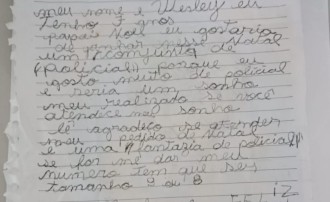 meu nome e Wesley eu
tenho 7 anos
papai Noel eu gostaria
de ganhar nesse Natal
um conjunto de
(Policial) porque eu
gosto muito de policial
e seria um sonho
meu realizado se você
atendice meu sonho
le agradeço se atender
meu pedido de Natal
e uma (fantazia de policial)
se for me dar meu
numero tem que ser
tamanho 9 ou 8